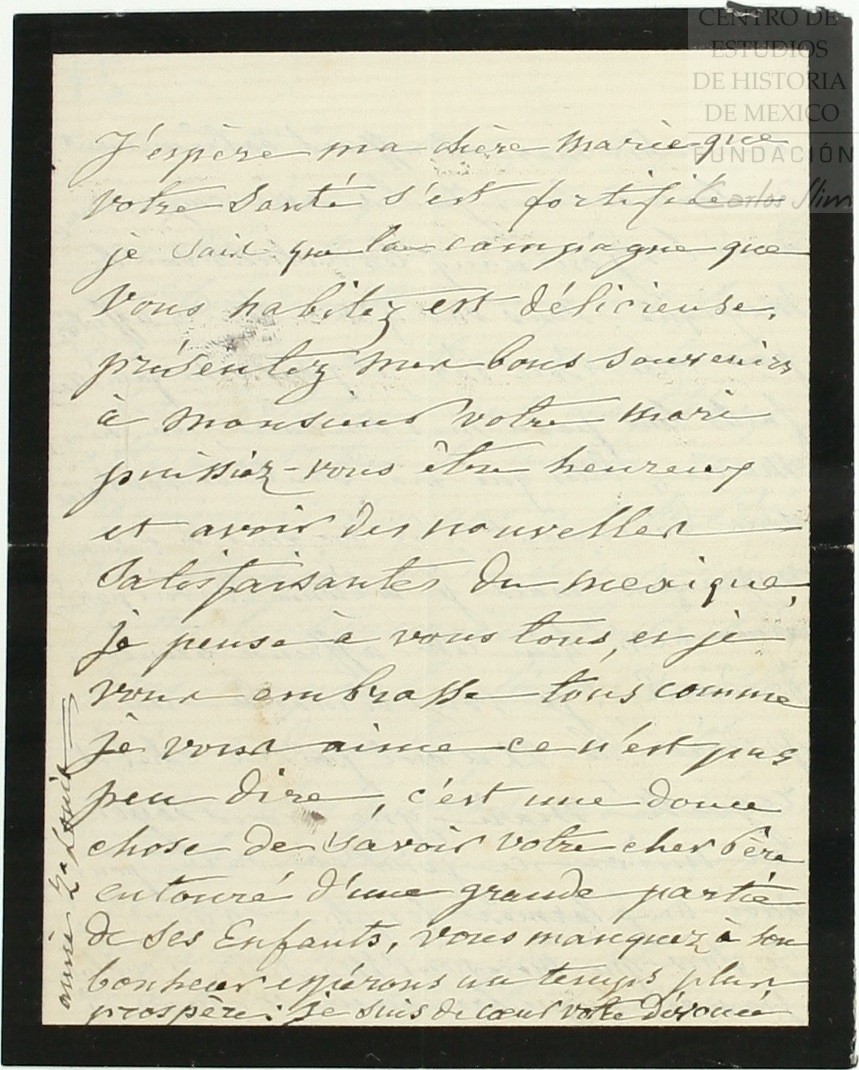 CENTRO DE
ESTUDIOS
DE HISTORIA
DE MEXICO
FUNDACIÓN
Carlos Slim
J'espère ma chère Marie que
votre santé s'est fortifiée
je sais que la campagne que
vous habitez est délicieuse,
présentez mes bons souvenirs
à monsieur votre mari
puissiez-vous être heureux
et avoir des nouvelles
satisfaisantes du mexique,
je pense à vous tous, et je
vous embrasse tous comme
je vous aime ce n'est pas
peu dire, c'est une douce
chose de savoir votre cher Père
entouré d'une grande partie
de ses Enfants, vous manquez à son
bonheur espérons un temps plus
prospère. Je suis de cœur votre dévouée
amie